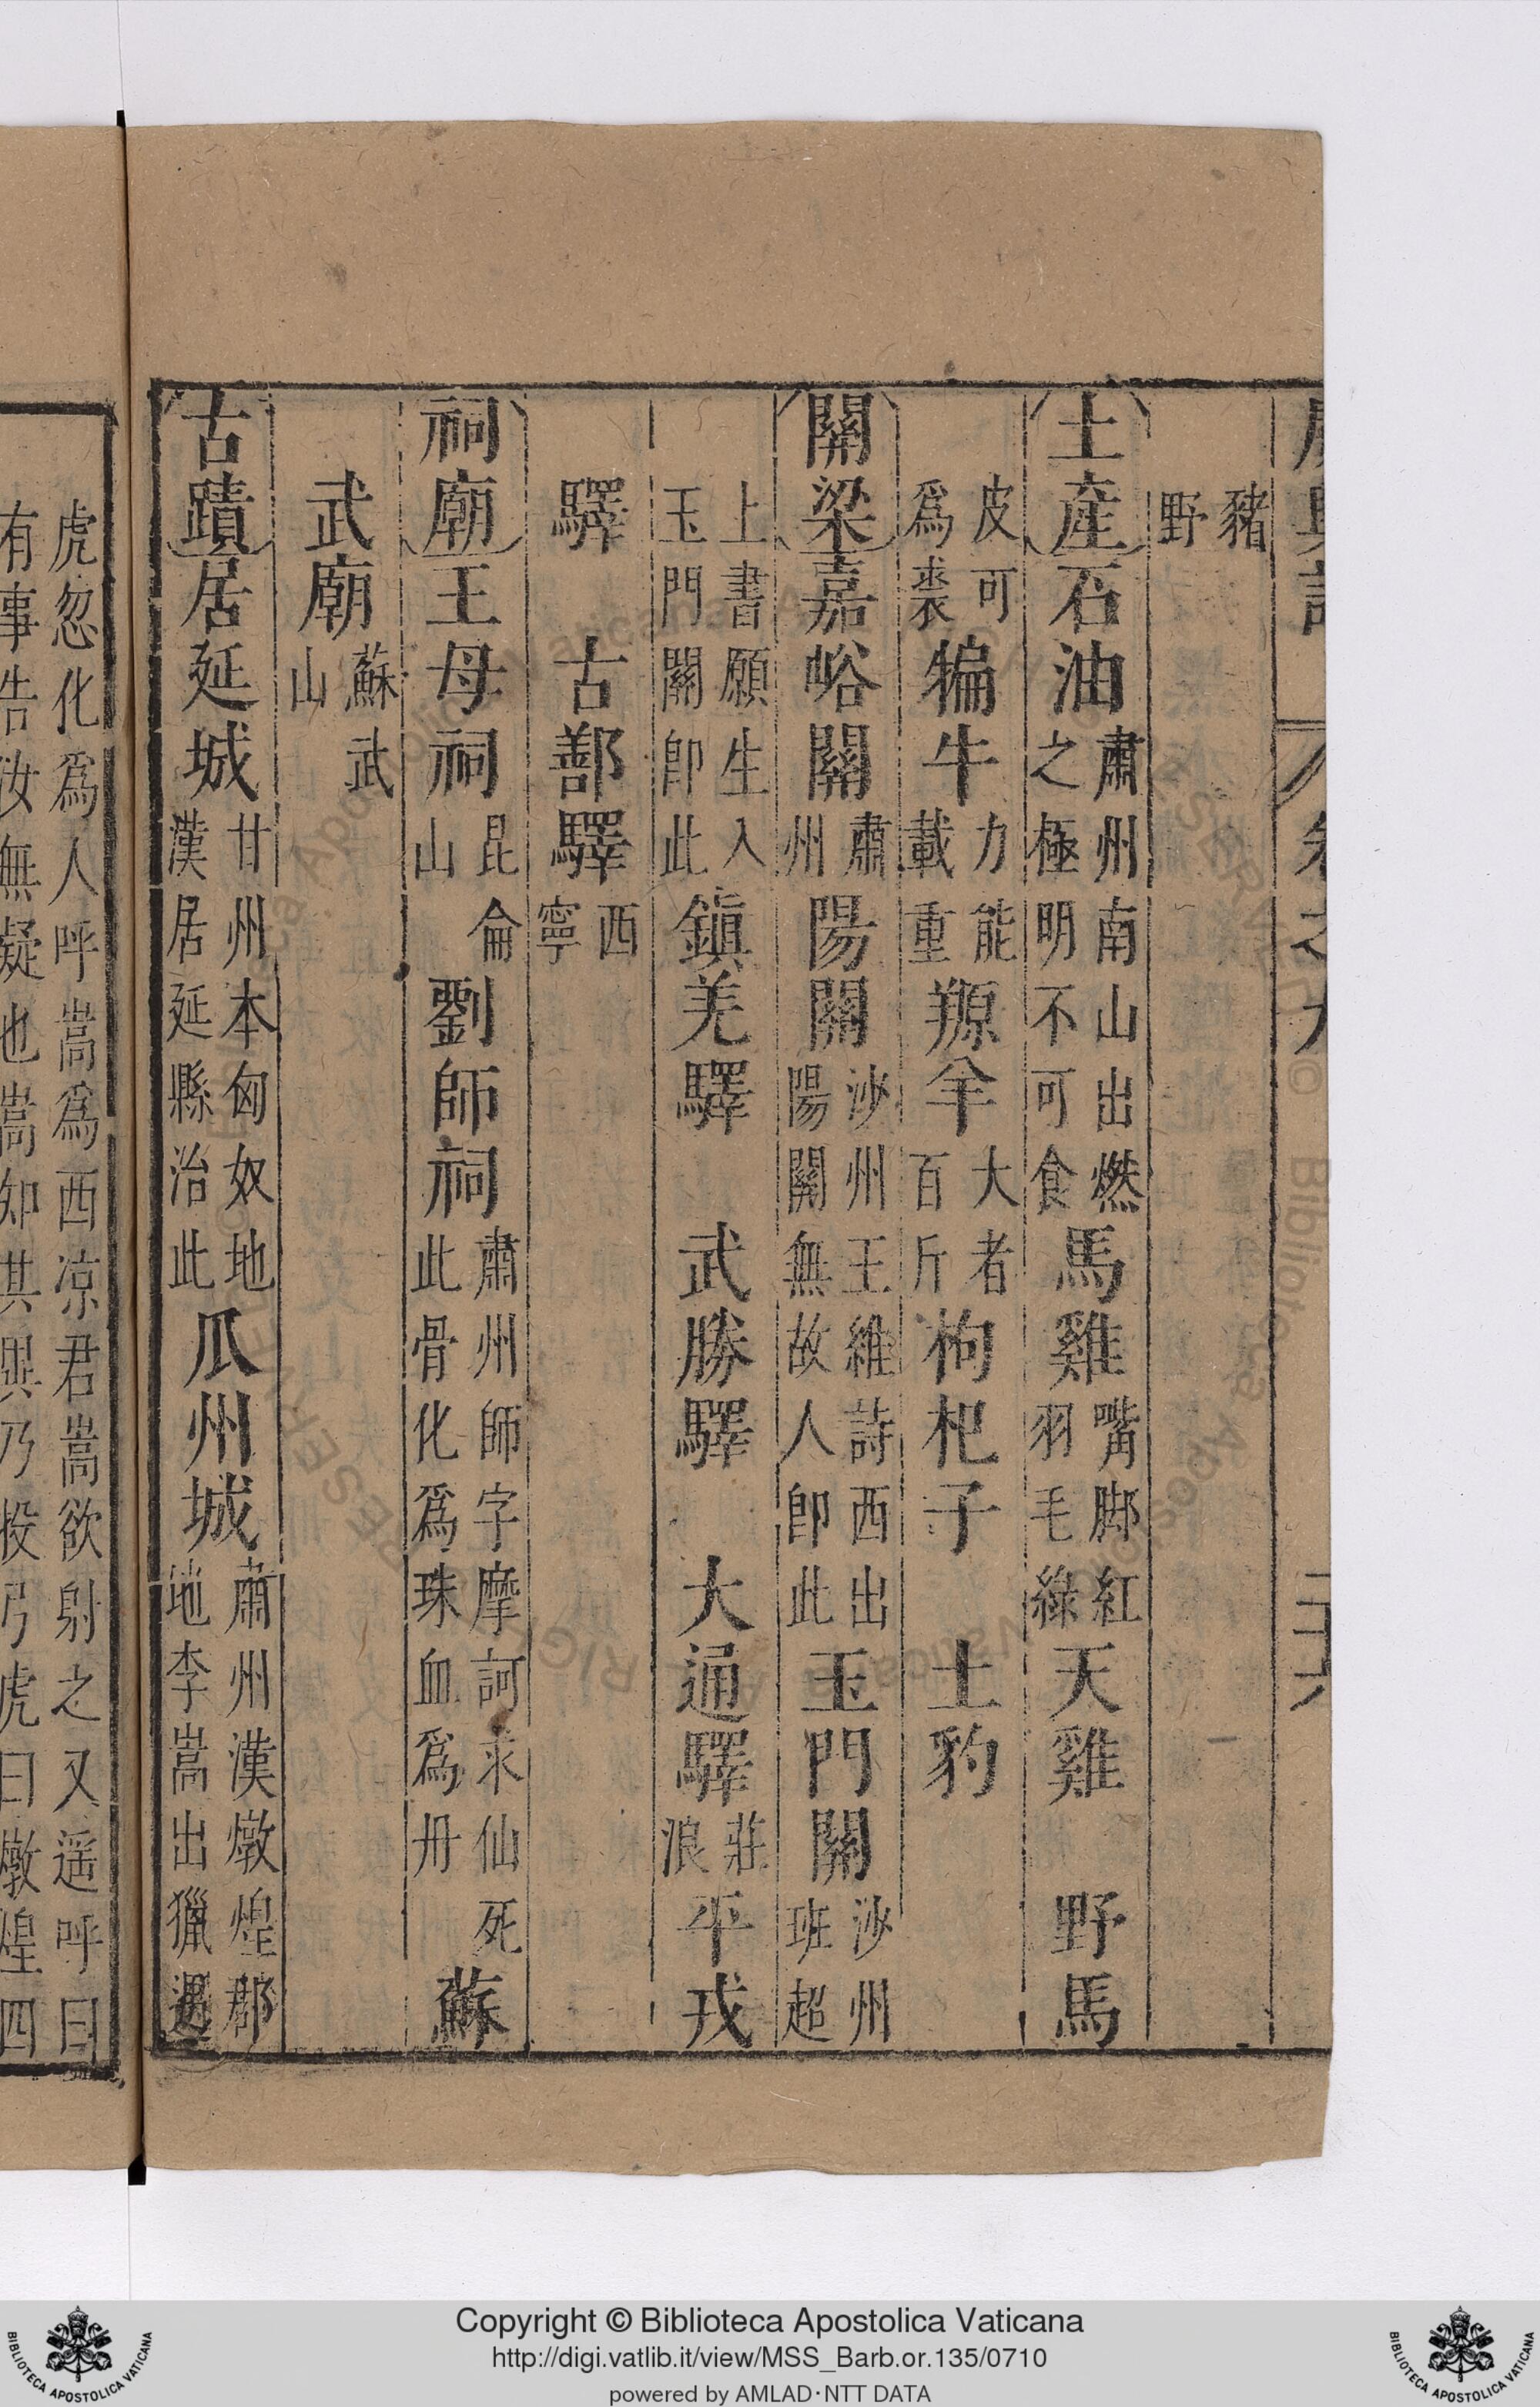 豬野
土產石油肅州南山出燃之極明不可食馬雞嘴脚紅羽毛綠天雞 野馬
皮可爲裘犏牛力能載重羱羊大者百斤枸杞子 土豹
關梁嘉峪關肅州陽關沙州王維詩西出陽關無故人卽此玉門關沙州班超
上書願生入玉門關卽此鎮羌驛 武勝驛 大通驛莊浪平戎
驛 古鄯驛西寧
祠廟王母祠昆侖山劉師祠肅州師字摩訶求仙死此骨化爲珠血爲丹蘇
武廟蘇武山
古蹟居延城甘州本匈奴地漢居延縣治此瓜州城肅州漢燉煌郡地李嵩出獵遇
虎忽化爲人呼嵩爲西凉君嵩欲射之又遥呼曰
有事告汝無疑也嵩知其異乃投弓虎曰燉煌四
Copyright © Biblioteca Apostolica Vaticana
http://digi.vatlib.it/view/MSS_Barb.or.135/0710
powered by AMLAD·NTT DATA